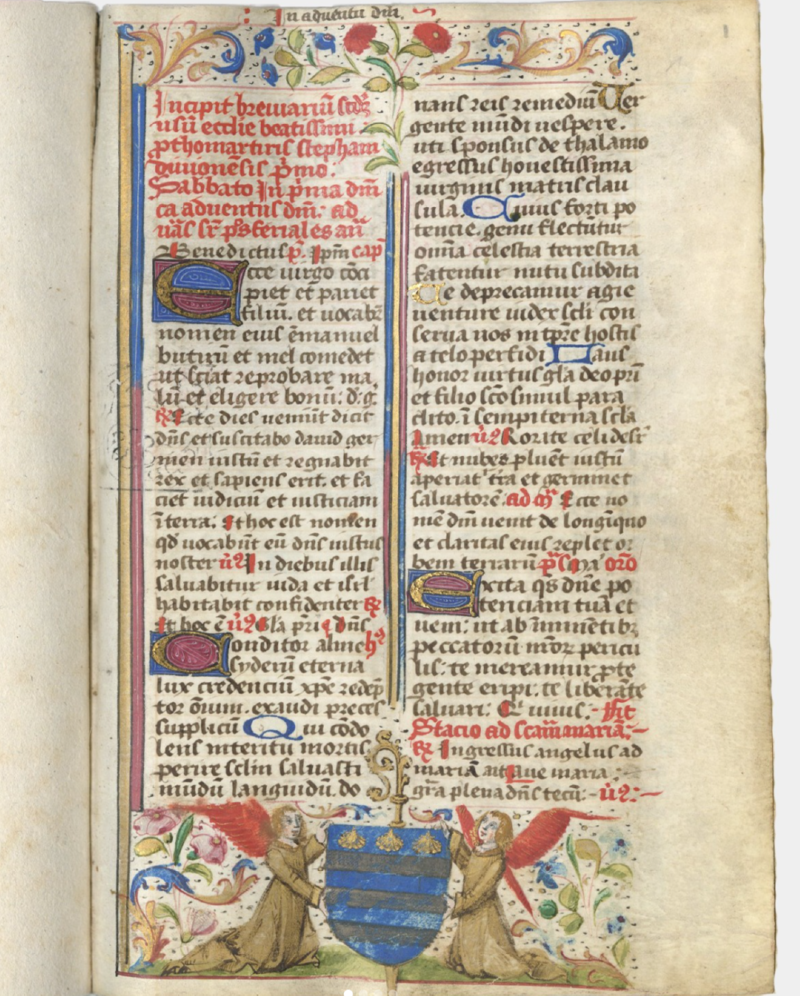 In adventu dni.
Incipit breviariū scd̄z
usū ecclie beatissimi
ꝓthomartiris stephani
divionēsis p̄mo.
Sabbato In p̄ma dm̄
ca adventus dm̄. ad
v̄as sr̄ p̄s feriales an̄
Benedictus p̄. Ip̄m cap̄
Ecce virgo cōci
piet et pariet
filiū. et vocabr̄
nomen eius ēmanuel
butirū et mel comedet
ut sciat reprobare ma
lū et eligere bonū: d: g:
℞ Ecce dies veniūt dicit
dn̄s et suscitabo david ger
men iustū et regnabit
rex et sapiens erit. et fa
ciet iudiciū et iusticiam
ī terra: Et hoc est nomen
qd̄ vocabūt eū dn̄s iustus
noster v̄ In diebus illis
salvabitur iuda et isrl̄
habitabit confidenter ℞
Et hoc ē v̄ Gla p̄ri dn̄s
Conditor alme hȳ
syderū eterna
lux credenciū xp̄e redēp
tor oīum. exaudi preces
supplicū Qui cōdo
lens interitu mortis
perire sclm̄ salvasti
mūdū languidū. do
nans reis remediū Ver
gente mūdi vespere.
uti sponsus de thalamo
egressus honestissima
virginis matris clau
sula. Cuius forti po
tencie. genu flectūtur
omnia celestia terrestria
fatentur nutu subdita
Te deprecamur agie
venture iudex scli con
serva nos in tp̄re hostis
a telo perfidi Laus
honor virtus gl̄a deo pr̄i
et filio sc̄o simul para
clito. ī sempiterna scl̄a
Amen v̄ Rorate celi desr̄
℞ Et nubes pluēt iustū
aperiat'tr̄a et germinet
salvatorē ad m̄ Ecce no
mē dm̄ venit de longīquo
et claritas eius replet or
bem terrarū p̄s mā oro
Excita q̄s dn̄e po
tenciam tuā et
veni: ut ab īminēti bz
peccatorū nr̄oz pericu
lis: te mereamur ꝓte
gente eripi: te liberāte
salvari: Q vivis. Fit
Stacio ad scām mariā.
℞ Ingressus angelus ad
mariā ait Ave maria.
gr̄a plena dn̄s tecū: v̄: